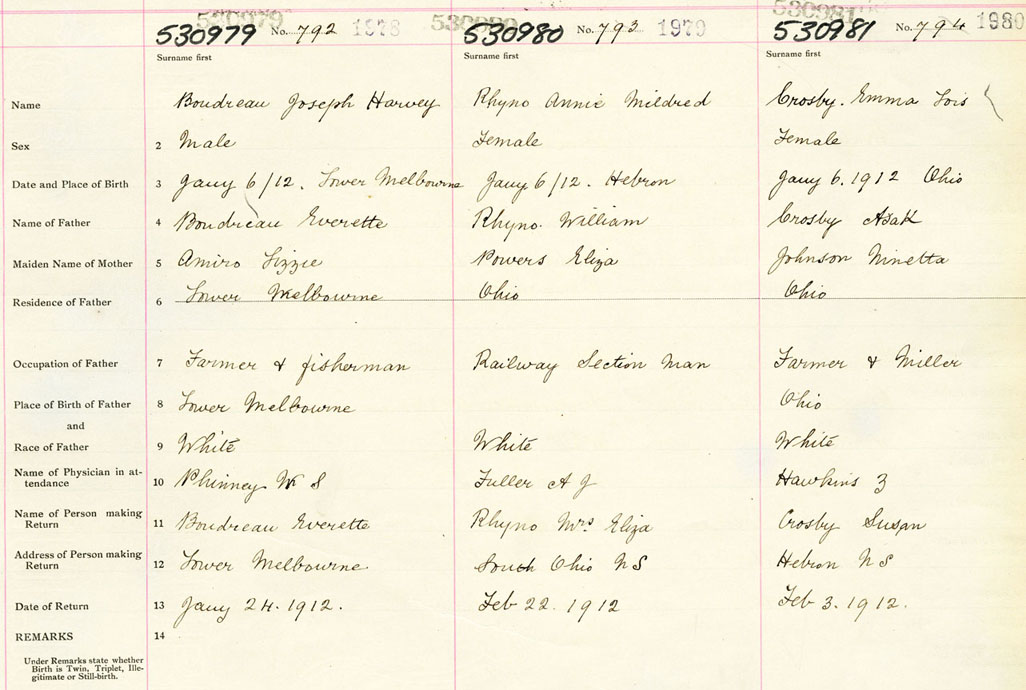 530979 530980 530981
530979 No. 792 1978 530980 No. 793 1979 530981 No. 794 1980
Surname first Surname first Surname first
Name Boudreau Joseph Harvey Rhyno Annie Mildred Crosby. Emma Lois
Sex 2 Male Female Female
Date and Place of Birth 3 Jany 6/12. Lower Melbourne Jany 6/12. Hebron Jany 6. 1912 Ohio
Name of Father 4 Boudreau Everette Rhyno. William Crosby Asak
Maiden Name of Mother 5 Amiro Lizzie Powers Eliza Johnson Ninetta
Residence of Father 6 Lower Melbourne Ohio Ohio
Occupation of Father 7 Farmer & fisherman Railway Section Man Farmer & Miller
Place of Birth of Father 8 Lower Melbourne Ohio
and
Race of Father 9 White White White
Name of Physician in at-
tendance 10 Phinney W S Fuller A J Hawkins Z
Name of Person making
Return 11 Boudreau Everette Rhyno Mrs Eliza Crosby Susan
Address of Person making
Return 12 Lower Melbourne South Ohio N S Hebron N S
Date of Return 13 Jany 24. 1912. Feb 22. 1912 Feb 3. 1912.
REMARKS 14
Under Remarks state whether
Birth is Twin, Triplet, Ille-
gitimate or Still-birth.